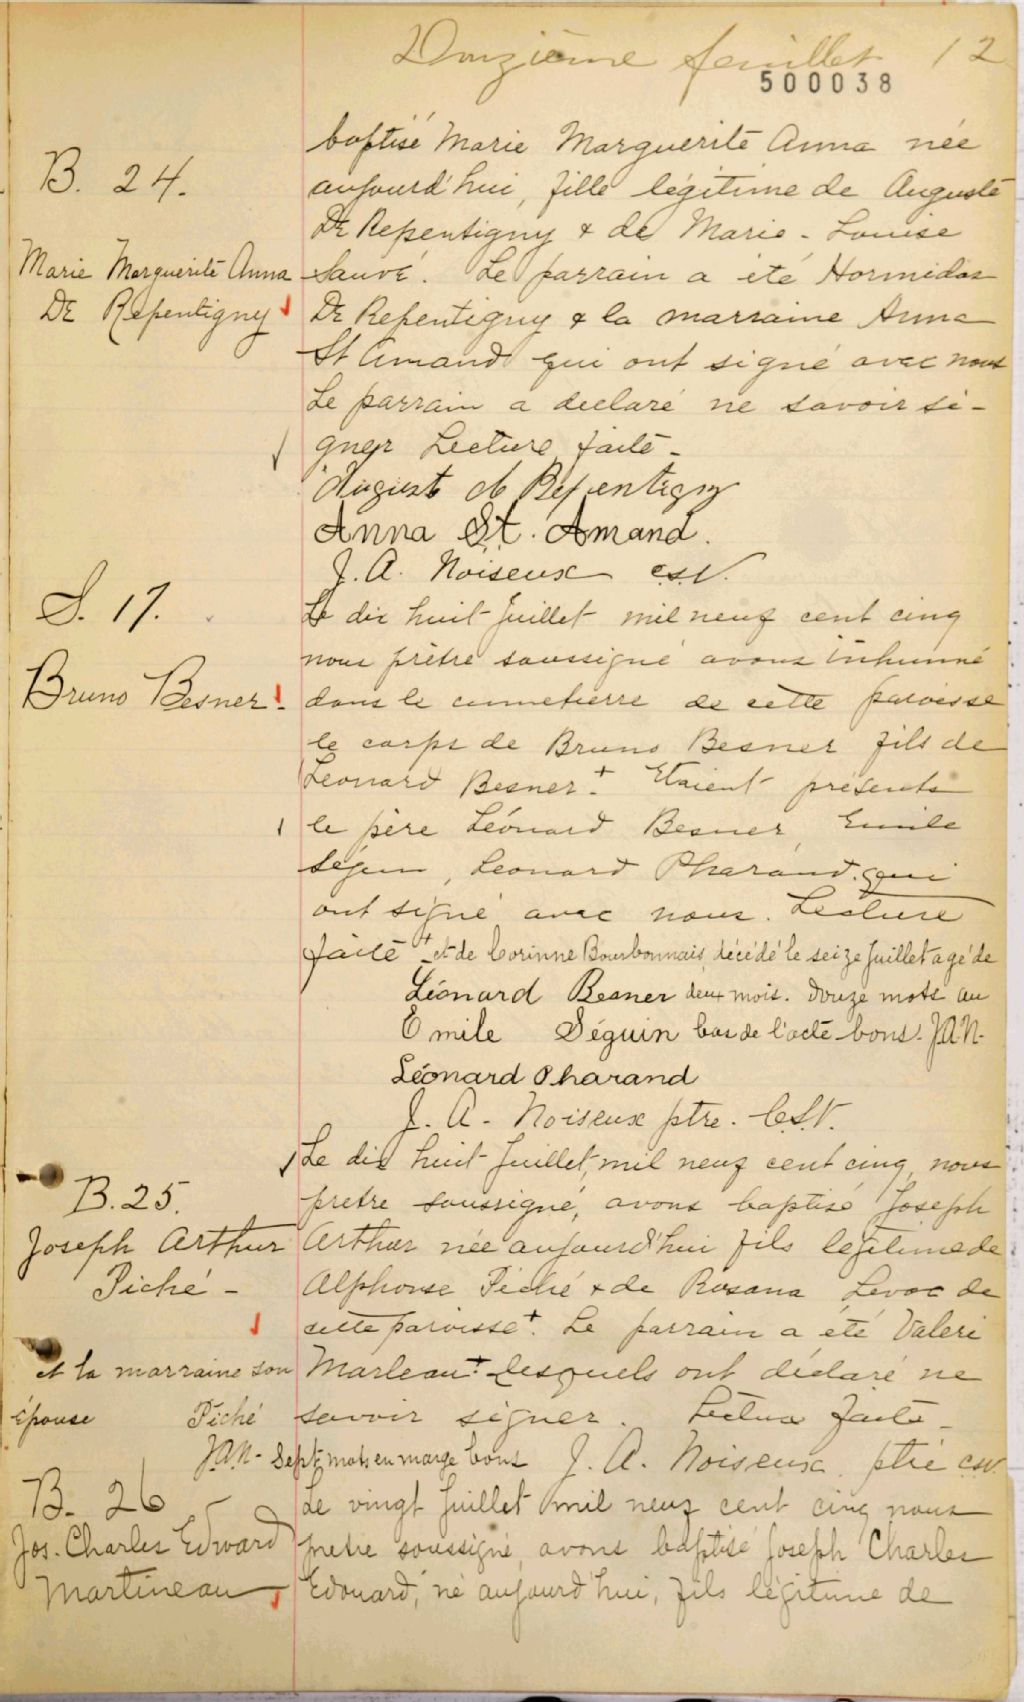 Douzième feuillet 12
500038
B. 24.
Marie Marguerite Anna
De Repentigny
baptisé Marie Marguerite Anna née
aujourd'hui, fille légitime de Auguste
De Repentigny & de Marie-Louise
Sauvé. Le parrain a été Hormidas
De Repentigny & la marraine Anna
St Amand qui ont signé avec nous
Le parrain a declaré ne savoir si-
gner Lecture faite -
August de Repentigny
Anna St. Amand.
J. A. Noiseux c.s.v.
S. 17.
Bruno Besner -
Le dix huit Juillet mil neuf cent cinq
nous prêtre soussigné avons inhumé
dans le cimetierre de cette paroisse
le corps de Bruno Besner fils de
Léonard Besner + Etaient présents
le père Léonard Besner, Emile
Séguin, Leonard Pharand. qui
ont signé avec nous. Lecture
faite + et de Corinne Bourbonnais, décédé le seize Juillet agé de
Léonard Besner deux mois. Douze mots au
Emile Séguin bas de l'acte bons. J.A.N-
Léonard Pharand
J. A. Noiseux ptre. C.S.V.
B. 25.
Joseph Arthur
Piché -
Le dix huit Juillet, mil neuf cent cinq, nous
pretre soussigné, avons baptisé Joseph
Arthur née aujourd'hui fils legitime de
Alphonse Piché & de Rosana Levac de
cette paroisse +. Le parrain a été Valeri
et la marraine son
épouse Piché
J.A.N- Sept mots en marge bons
Marleau + lesquels ont déclaré ne
savoir signer. Lecture faite -
J. A. Noiseux ptre c.s.v.
B. 26
Jos. Charles Edward
Martineau
Le vingt Juillet mil neuf cent cinq nous
pretre soussigné, avons baptisé Joseph Charles
Edouard, né aujourd'hui, fils légitime de